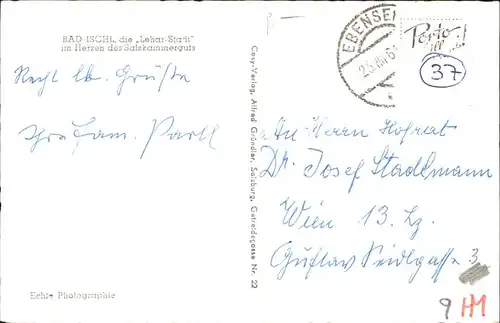 BAD-ISCHL, die „Lehar-Stadt"
im Herzen des Salzkammerguts
Recht lb. Grüße
Cosy-Verlag, Alfred Gründler, Salzburg, Getreidegasse Nr. 22
EBENSEE
Porto
37
An Herrn Hofrat
Dr. Josef Stadlmann
Wien 13. Lg.
Gustav Seidlgasse 3
Echte Photographie
9 HM